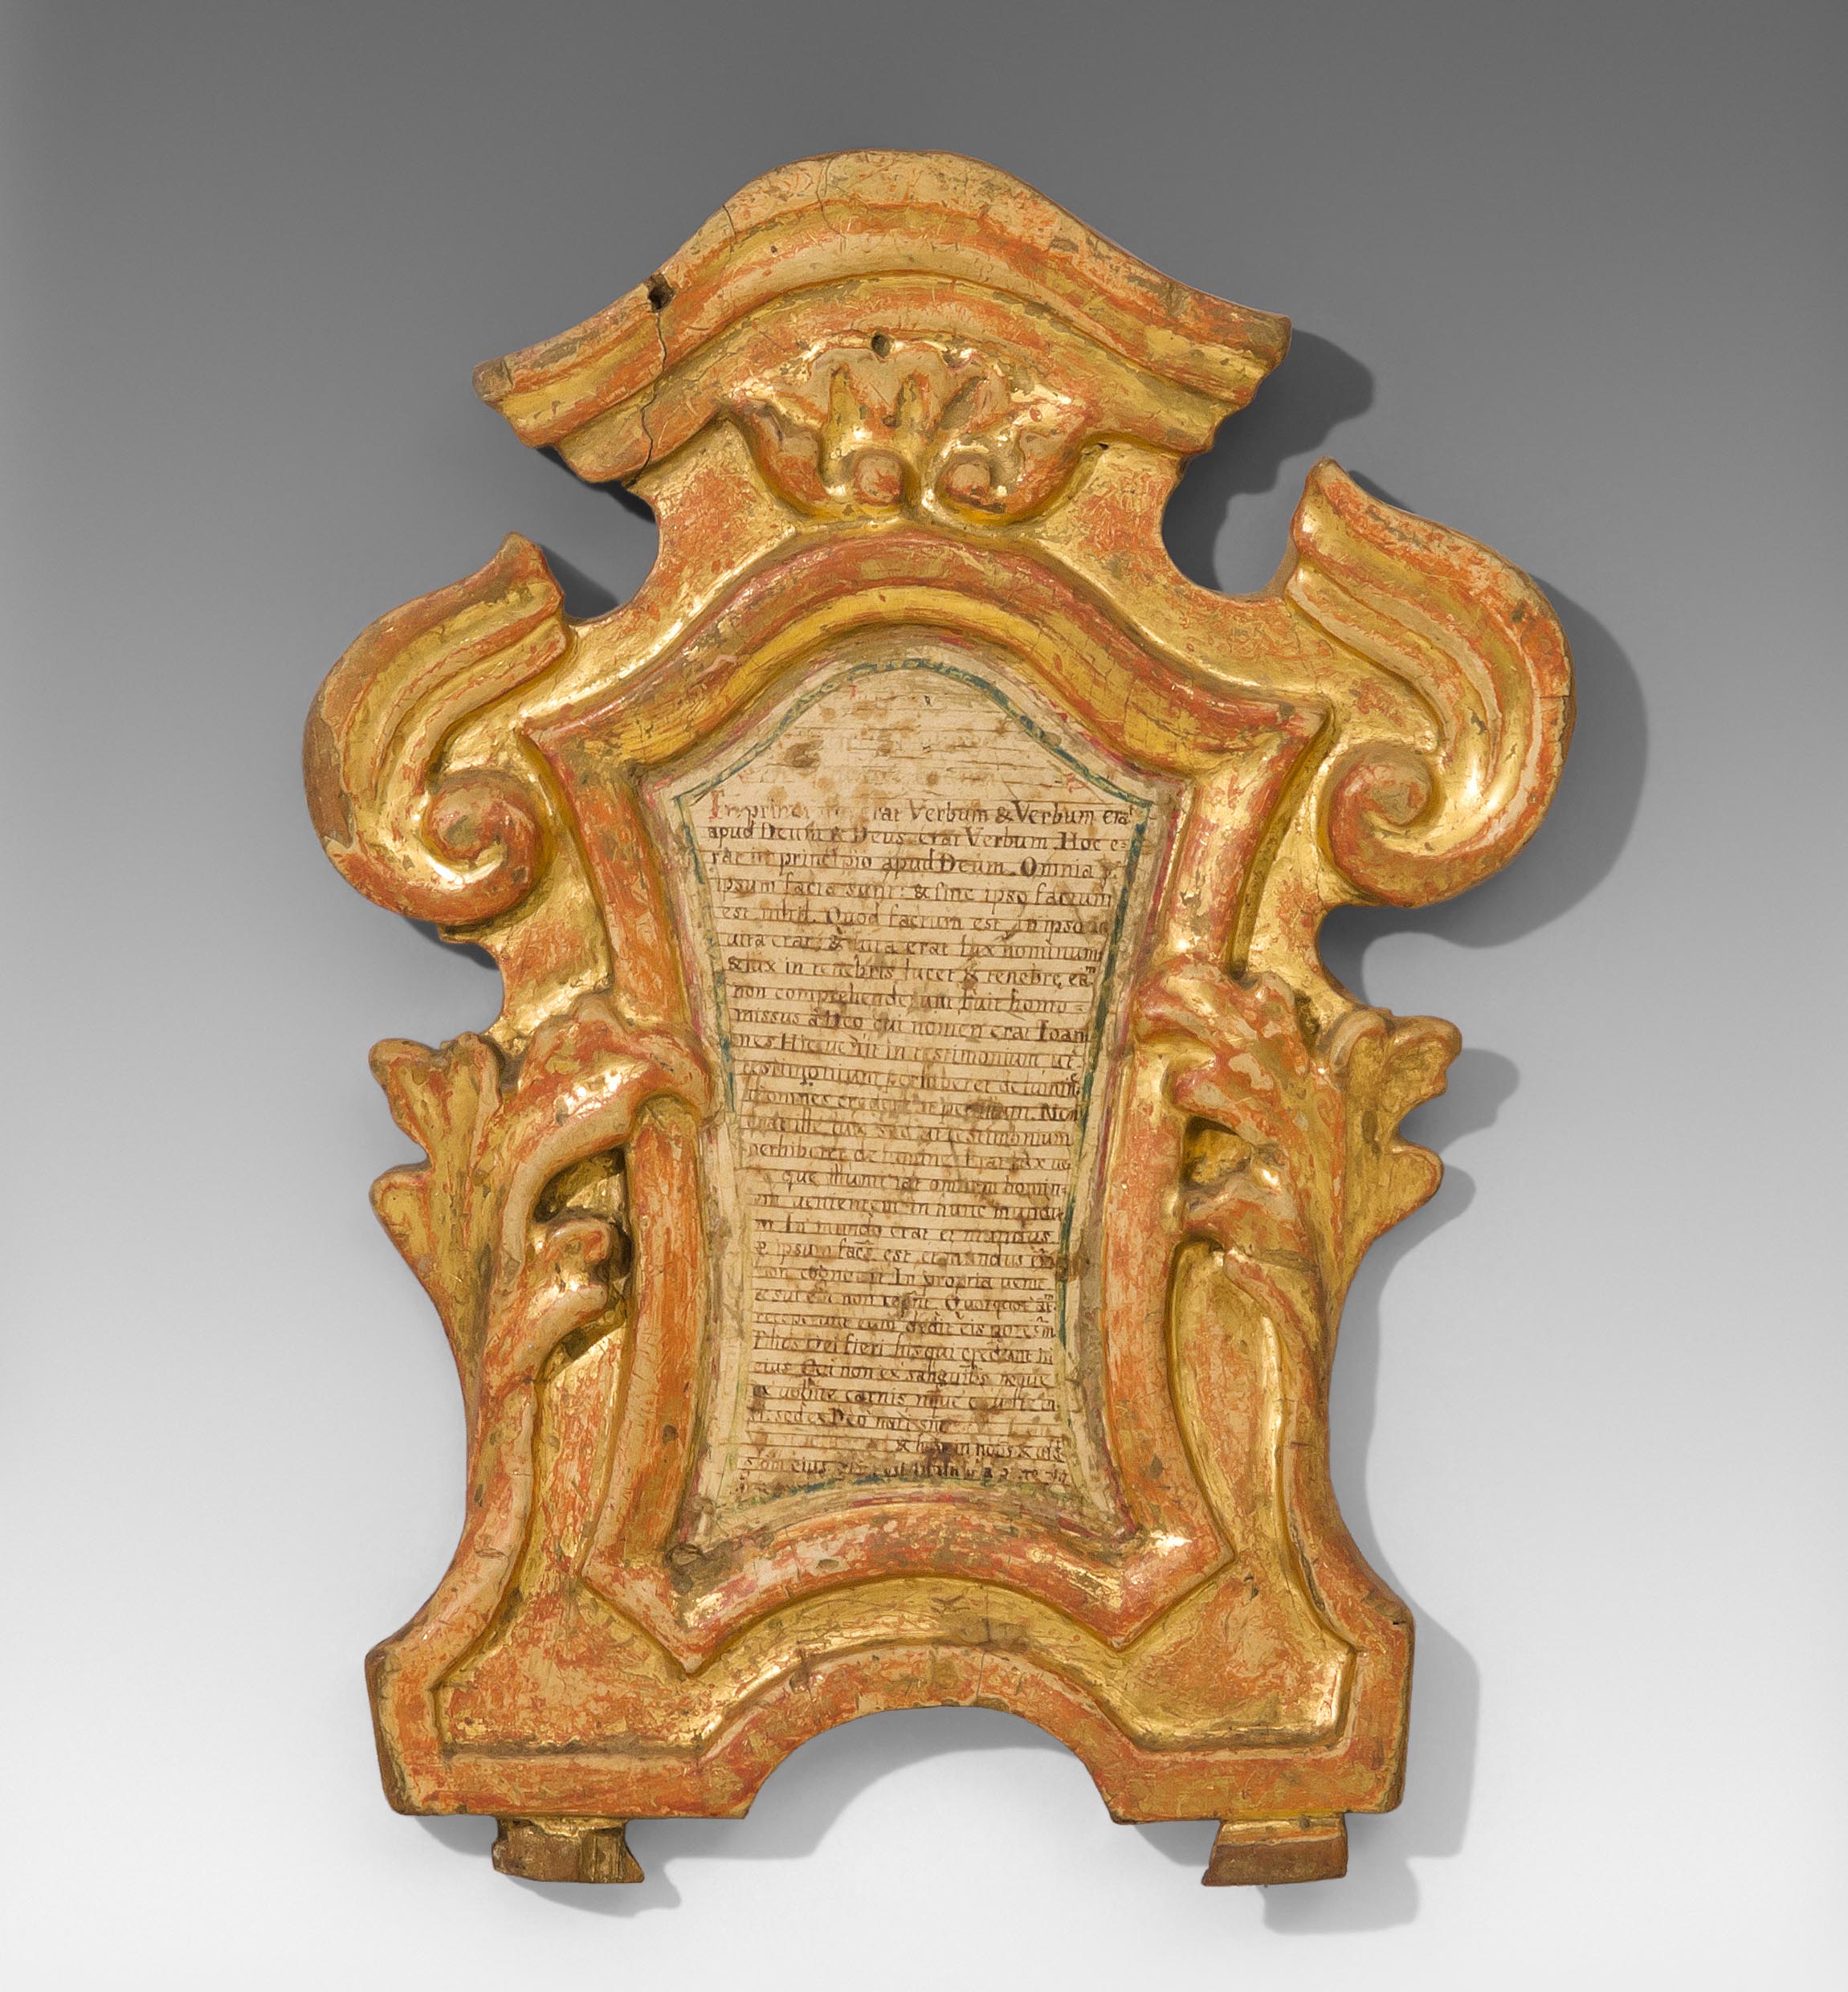 In princi erat Verbum & Verbum erat
apud Deum & Deus erat Verbum Hoc e=
rat in principio apud Deum. Omnia p.
ipsum facta sunt: & sine ipso factum
est nihil. Quod factum est in ipso
uita erat, & uita erat lux hominum
& lux in tenebris lucet & tenebre eā
non comprehenderunt Fuit homo
missus a Deo cui nomen erat Ioan
nes Hic uenit in testimonium ut
testimonium perhiberet de lumine
ut omnes crederent per illum. Non
erat ille lux, sed ut testimonium
perhiberet de lumine. Erat lux ue
que illuminat omnem homin-
em uenientem in hunc mundu
m In mundo erat et mundus
p ipsum facts est et mundus
non cognouit In propria uenit
& sui eum non Quotquot
receperunt eum dedit eis
filios Dei fieri his qui credunt in
eius Qui non ex neque
ex carnis neque ex
sed ex Deo nati sūt
& in nobis &
eius